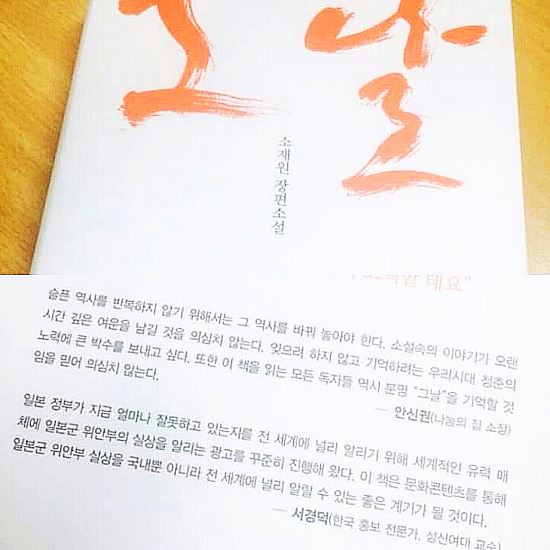 그날
소재원 장편소설
테요"
슬픈 역사를 반복하지 않기 위해서는 그 역사를 바꿔 놓아야 한다. 소설속의 이야기가 오랜
시간 깊은 여운을 남길 것을 의심치 않는다. 잊으려 하지 않고 기억하려는 우리시대 청춘의
노력에 큰 박수를 보내고 싶다. 또한 이 책을 읽는 모든 독자들 역시 분명 "그날"을 기억할 것
임을 믿어 의심치 않는다.
— 안신권(나눔의 집 소장)
일본 정부가 지금 얼마나 잘못하고 있는지를 전 세계에 널리 알리기 위해 세계적인 유력 매
체에 일본군 위안부의 실상을 알리는 광고를 꾸준히 진행해 왔다. 이 책은 문화콘텐츠를 통해
일본군 위안부 실상을 국내뿐 아니라 전 세계에 널리 알릴 수 있는 좋은 계기가 될 것이다.
— 서경덕(한국 홍보 전문가, 성신여대 교수)